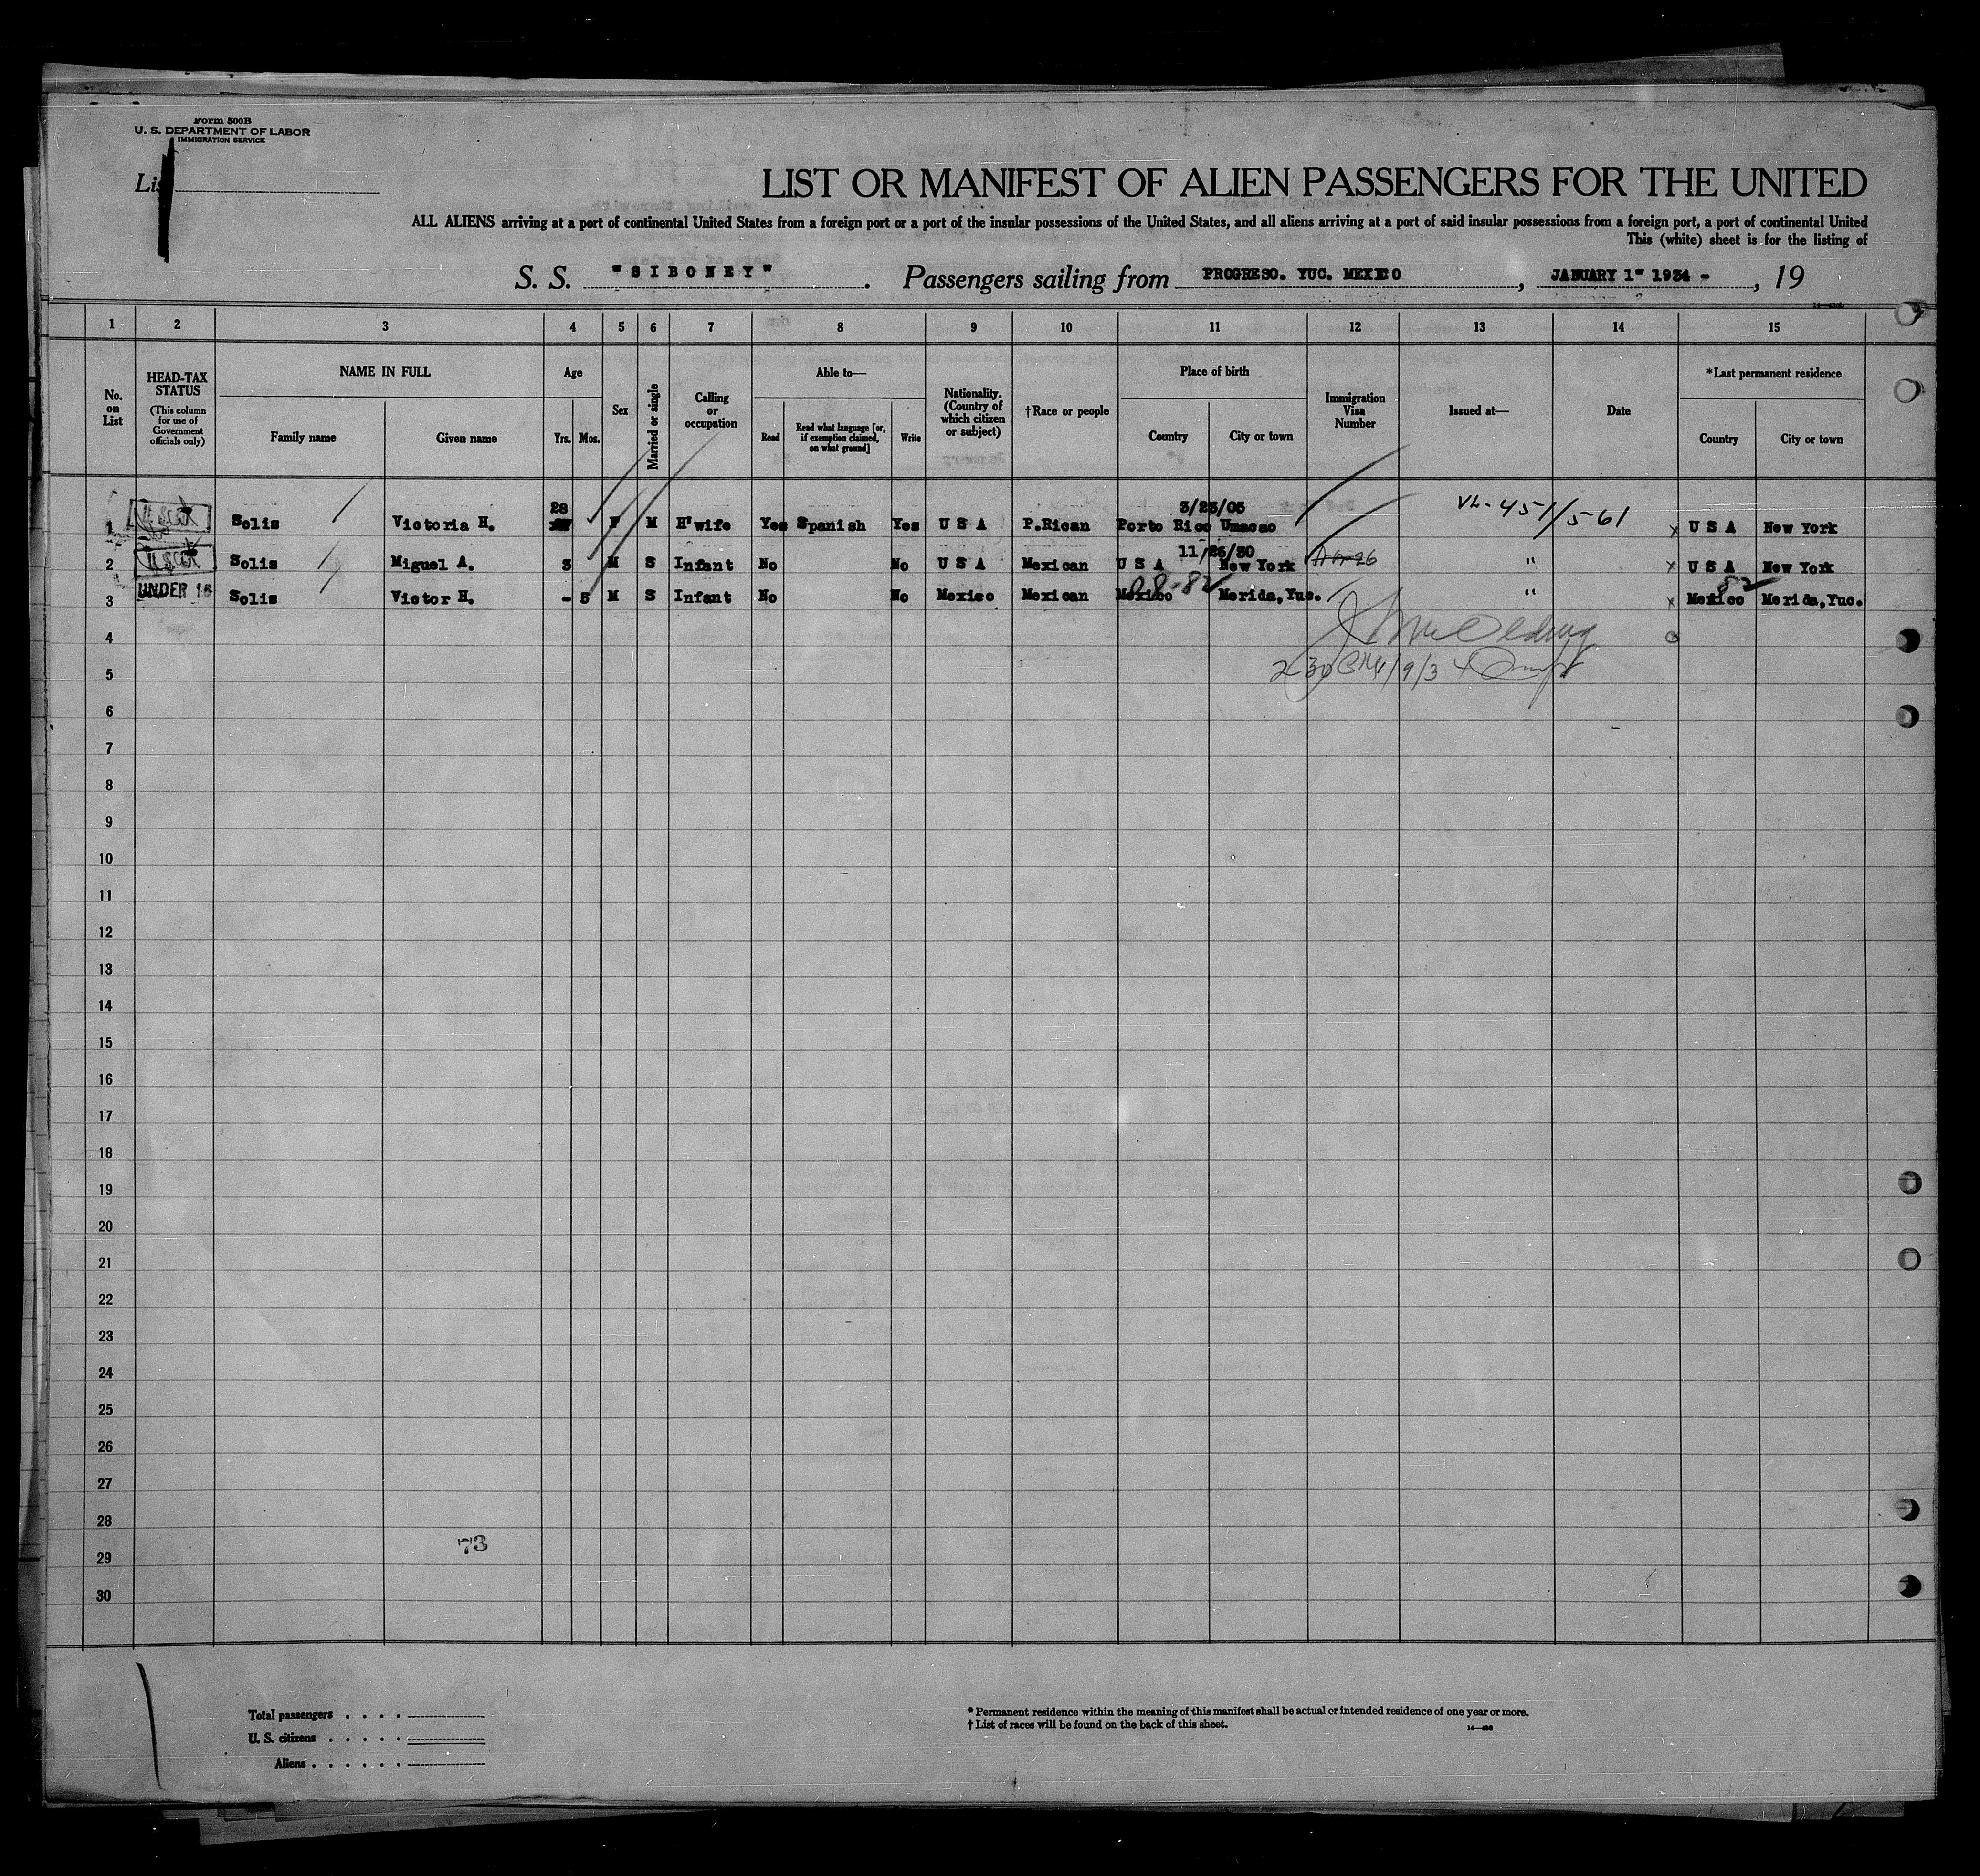 Form 500B
U. S. DEPARTMENT OF LABOR
IMMIGRATION SERVICE
LIST OR MANIFEST OF ALIEN PASSENGERS FOR THE UNITED
ALL ALIENS arriving at a port of continental United States from a foreign port or a port of the insular possessions of the United States, and all aliens arriving at a port of said insular possessions from a foreign port, a port of continental United
This (white) sheet is for the listing of
S. S. "SIBONEY". Passengers sailing from PROGRESO. YUC. MEXICO, JANUARY 1st 1934 -, 19
1 2 3 4 5 6 7 8 9 10 11 12 13 14 15
No. on List
HEAD-TAX STATUS
(This column for use of Government officials only)
NAME IN FULL
Family name Given name
Age
Yrs. Mos.
Sex
Married or single
Calling or occupation
Able to—
Read Read what language [or, if exemption claimed, on what ground] Write
Nationality. (Country of which citizen or subject)
†Race or people
Place of birth
Country City or town
Immigration Visa Number
Issued at—
Date
*Last permanent residence
Country City or town
28 3/23/05
1 Solis Victoria H. F M H'wife Yes Spanish Yes U S A P.Rican Porto Rico Umacao VL-451/5-61 x U S A New York
11/26/30
2 Solis Miguel A. 3 M S Infant No No U S A Mexican U S A New York " x U S A New York
UNDER 16 82
3 Solis Victor H. - 5 M S Infant No No Mexico Mexican Mexico Merida,Yuc. " x Mexico Merida,Yuc.
4
5
6
7
8
9
10
11
12
13
14
15
16
17
18
19
20
21
22
23
24
25
26
27
28
73
29
30
Total passengers . . . .
U. S. citizens . . . . .
Aliens . . . . . .
* Permanent residence within the meaning of this manifest shall be actual or intended residence of one year or more.
† List of races will be found on the back of this sheet.